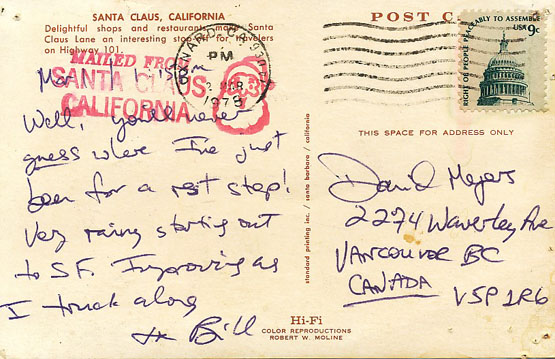 SANTA CLAUS, CALIFORNIA
Delightful shops and restaurants make Santa
Claus Lane an interesting stop for travelers
on Highway 101.
MAILED FROM
SANTA CLAUS
CALIFORNIA
PM
1978
Well, you'll never
guess where I've just
been for a rest stop!
Very rainy starting out
to S.F. Improving as
I truck along
Bill
standard printing inc. / santa barbara / california
Hi-Fi
COLOR REPRODUCTIONS
ROBERT W. MOLINE
POST C
RIGHT OF PEOPLE PEACEABLY TO ASSEMBLE
US 9c
THIS SPACE FOR ADDRESS ONLY
David Meyers
2274 Waverley Ave
VANCOUVER BC
CANADA
V5P 1R6